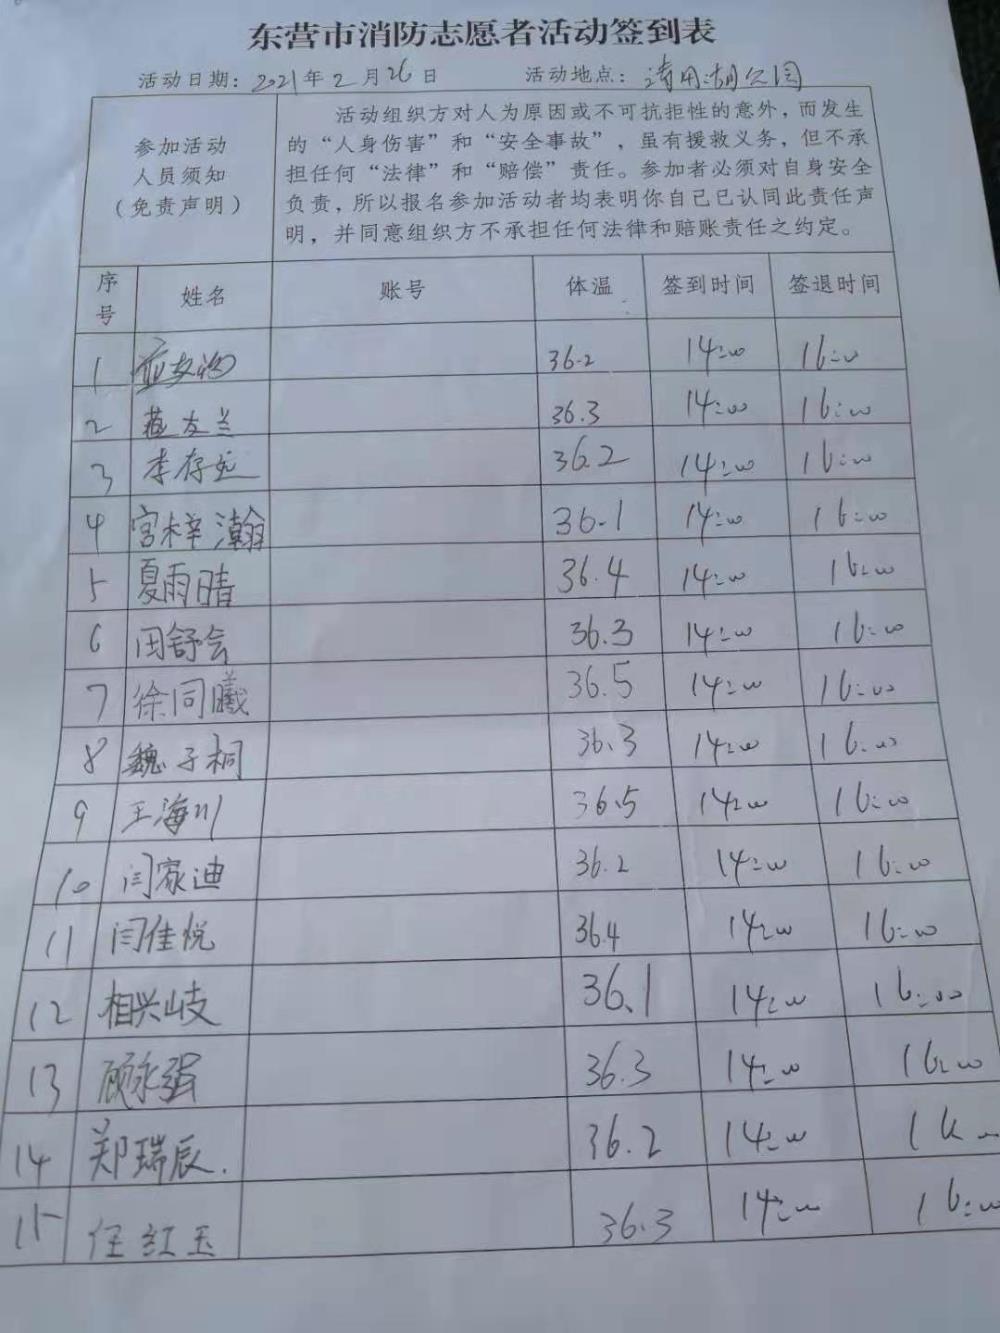 东营市消防志愿者活动签到表
活动日期：2021年2月26日 活动地点：清风湖公园
参加活动
人员须知
（免责声明）
活动组织方对人为原因或不可抗拒性的意外，而发生
的“人身伤害”和“安全事故”，虽有援救义务，但不承
担任何“法律”和“赔偿”责任。参加者必须对自身安全
负责，所以报名参加活动者均表明你自己已认同此责任声
明，并同意组织方不承担任何法律和赔账责任之约定。
序号 姓名 账号 体温 签到时间 签退时间
1 36.2 14:00 16:00
2 燕友兰 36.3 14:00 16:00
3 李存 36.2 14:00 16:00
4 宫梓瀚 36.1 14:00 16:00
5 夏雨晴 36.4 14:00 16:00
6 田舒会 36.3 14:00 16:00
7 徐同曦 36.5 14:00 16:00
8 魏子桐 36.3 14:00 16:00
9 王海川 36.5 14:00 16:00
10 闫家迪 36.2 14:00 16:00
11 闫佳悦 36.4 14:00 16:00
12 相兴岐 36.1 14:00 16:00
13 顾永强 36.3 14:00 16:00
14 郑瑞辰. 36.2 14:00 16:00
15 任红玉 36.3 14:00 16:00